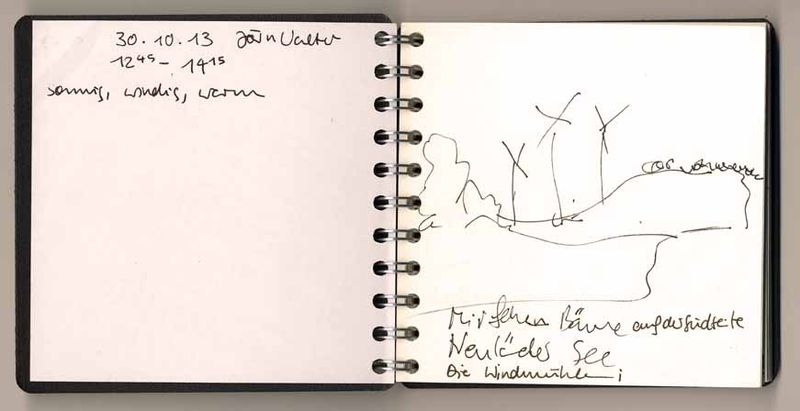 30.10.13 Jörn Walter
12⁴⁵ - 14¹⁵
sonnig, windig, warm
Mir fehlen Bäume auf der Südseite
Neuländer See
Die Windmühlen;